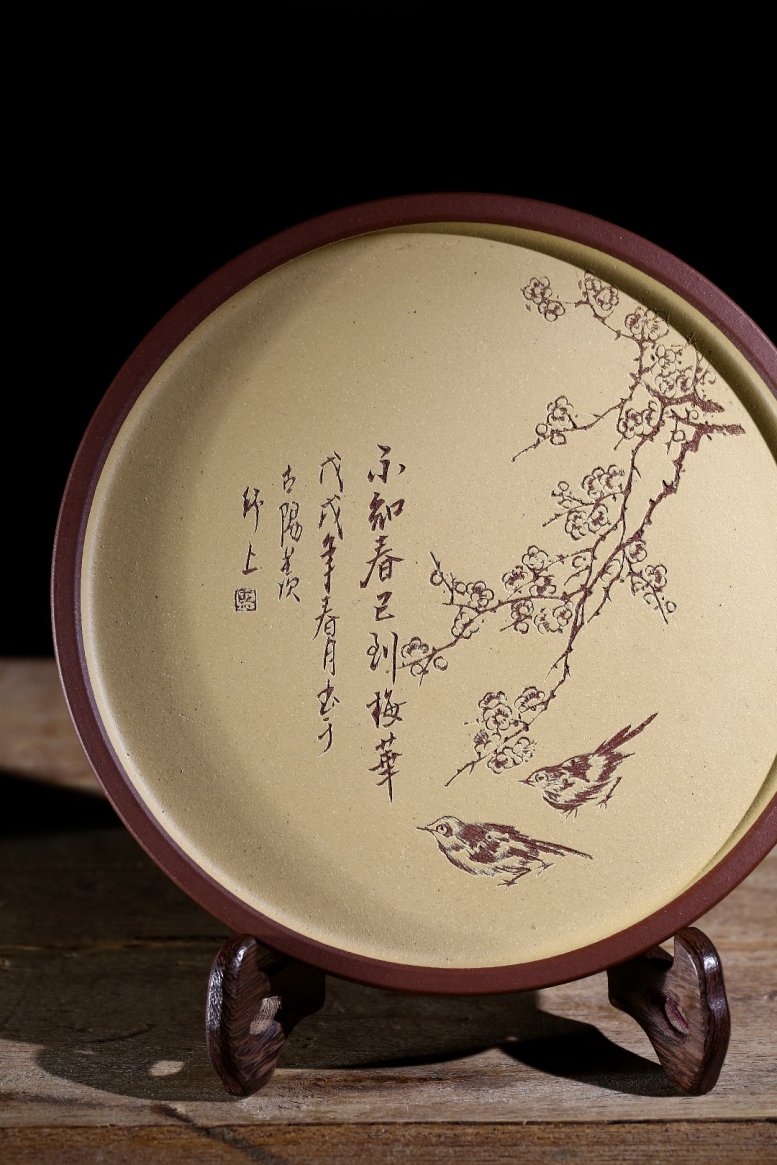 不知春已到梅華
戊戌年春月書于
古陽羨
上